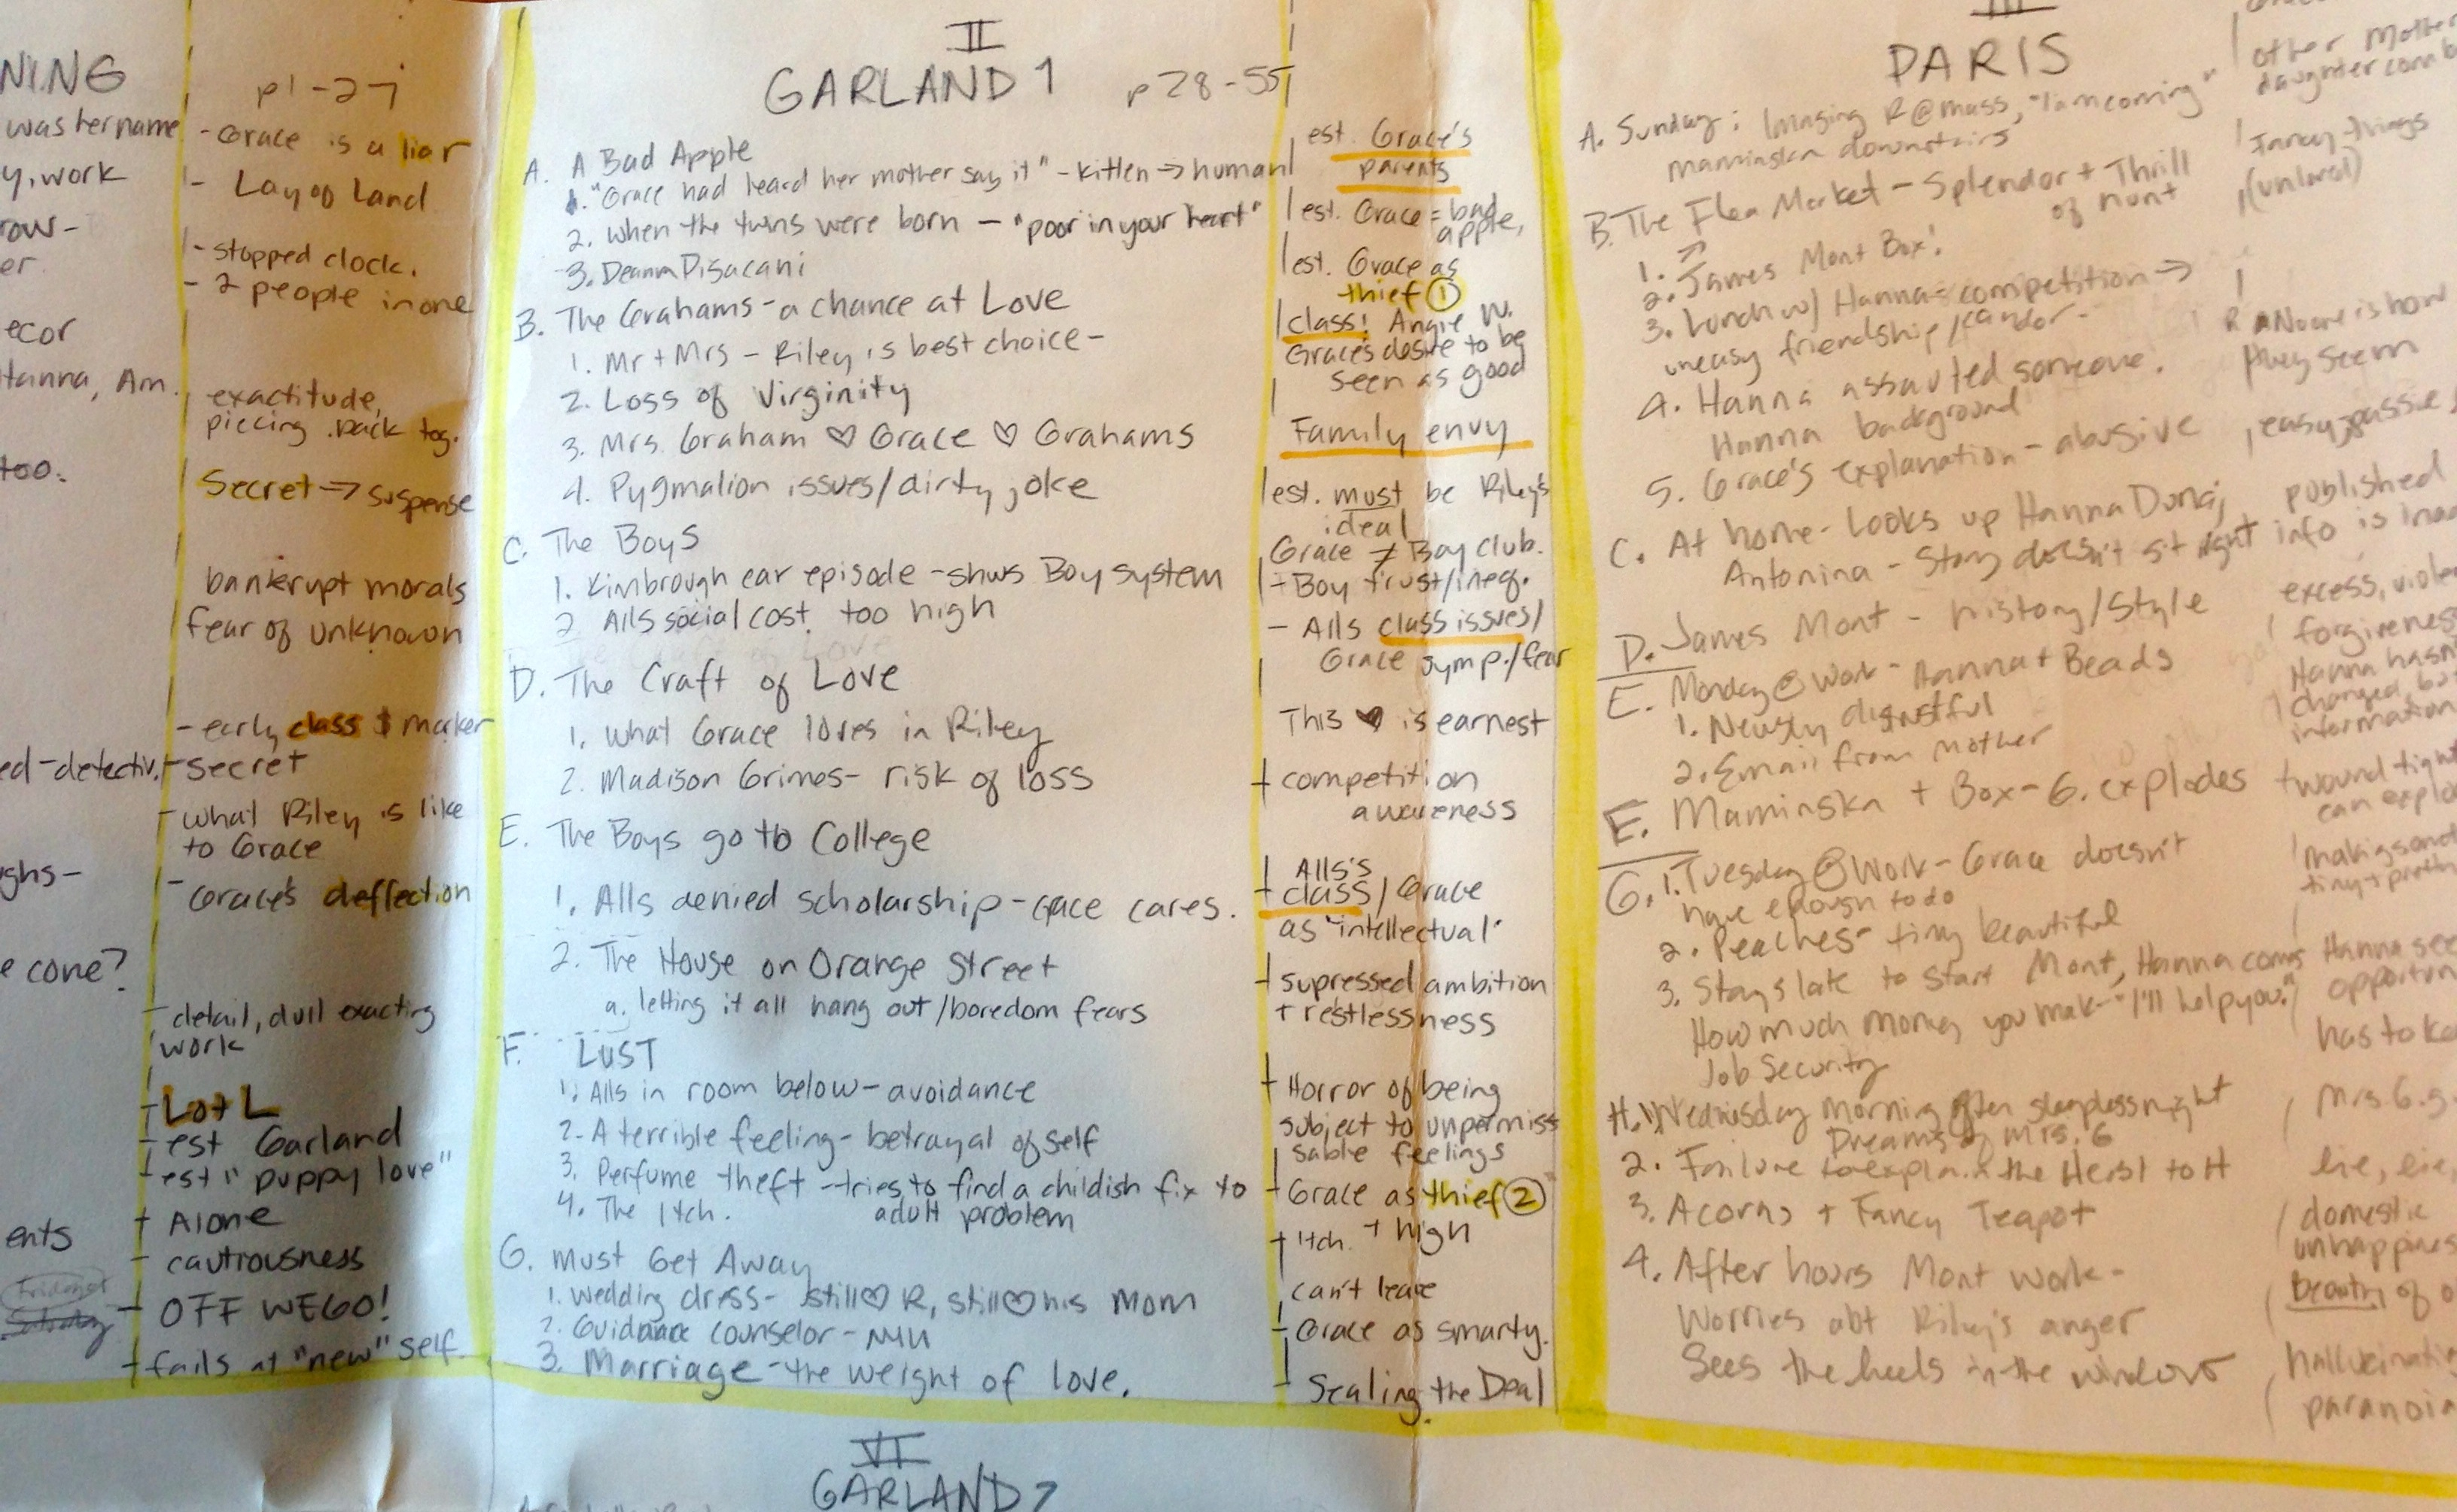 NING
was her name
y, work
row-
er
ecor
Hanna, Am.
too.
ed-detectiv.
ghs-
e cone?
ents
p1-27
-Grace is a liar
- Lay of Land
-stopped clock.
- 2 people in one
exactitude,
piecing back tog.
Secret → suspense
bankrupt morals
fear of unknown
-early class $ marker
-secret
-what Riley is like
to Grace
-Grace's deflection
-detail, dull exacting
work
-Lot L
-est Garland
-est "puppy love"
+ Alone
- cautiousness
- OFF WE GO!
+fails at "new" self.
II
GARLAND 1 p28-55
A. A Bad Apple
1. "Grace had heard her mother say it" - kitten → human
2. when the twins were born - "poor in your heart"
3. Deanna Disacani
B. The Grahams - a chance at Love
1. Mr + Mrs - Riley is best choice -
2. Loss of Virginity
3. Mrs. Graham ♡ Grace ♡ Grahams
4. Pygmalion issues/dirty joke
C. The Boys
1. Kimbrough ear episode - shws Boy system
2 Alls social cost too high
D. The Craft of Love
1. What Grace loves in Riley
2. Madison Grimes - risk of loss
E. The Boys go to College
1. Alls denied scholarship - grace cares.
2. The House on Orange Street
a. letting it all hang out/boredom fears
F. LUST
1. Alls in room below - avoidance
2. A terrible feeling - betrayal of self
3. Perfume theft - tries to find a childish fix to
adult problem
4. The Itch.
G. Must Get Away
1. Wedding dress - still ♡ R, still ♡ his Mom
2. Guidance counselor - NYU
3. Marriage - the weight of love.
est. Grace's
parents
est. Grace = bad
apple,
est. Grace as
thief ①
class! Angie W.
Grace's desire to be
seen as good
Family envy
est. must be Riley's
ideal
Grace ≠ Boy club.
-Boy trust/ineq.
- Alls class issues/
Grace symp./fear
This ♥ is earnest
+ competition
awareness
Alls's
+ class/Grace
as "intellectual"
+ supressed ambition
+ restlessness
+ Horror of being
subject to unpermis
sable feelings
- Grace as thief ②
+ itch. + high
can't leave
- Grace as smarty.
- Sealing the Deal
III
PARIS
A. Sunday: Imaging R@mass, "I am coming"
Maminska downstairs
B. The Flea Market - Splendor + Thrill
of Hunt
1. ↗
2. James Mont Box!
3. Lunch w/ Hanna - competition →
uneasy friendship/candor -
4. Hanna assaulted someone.
Hanna background
5. Grace's explanation - abusive
C. At home - Looks up Hanna Dunaj
Antonina - Story doesn't sit right
D. James Mont - history/style
E. Monday @ Work - Hanna + Beads
1. Newly distrustful
2. Email from mother
E. Maminska + Box - G. explodes
G. 1. Tuesday @ Work - Grace doesn't
have enough to do
2. Peaches - tiny beautiful
3. Stays late to start Mont, Hanna comes
How much money you make - "I'll help you."
Job Security
H. 1. Wednesday morning after sleepless night
Dreams of Mrs. G
2. Failure to explain the Heist to H
3. Acorns + Fancy Teapot
4. After hours Mont work -
Worries abt Riley's anger
Sees the heels in the window
other Mother
daughter comb
Fancy things
(unloved)
No one is how
they seem
easy, passive,
published
info is inac
excess, violen
forgiveness
Hanna hasn
changed, but
information
+wound tight
can explo
making some
tiny + pretty
Hanna see
opportun
has to ke
Mrs G.
lie, lie,
domestic
unhappines
beauty of o
hallucinatio
paranoia
VI
GARLAND 2